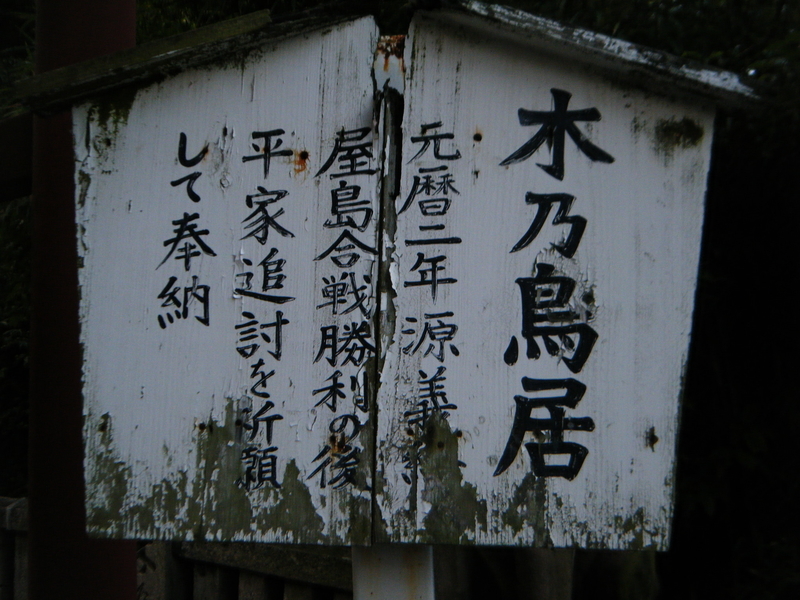 木乃鳥居
元暦二年 源義経
屋島合戦勝利の後
平家追討を祈願
して奉納